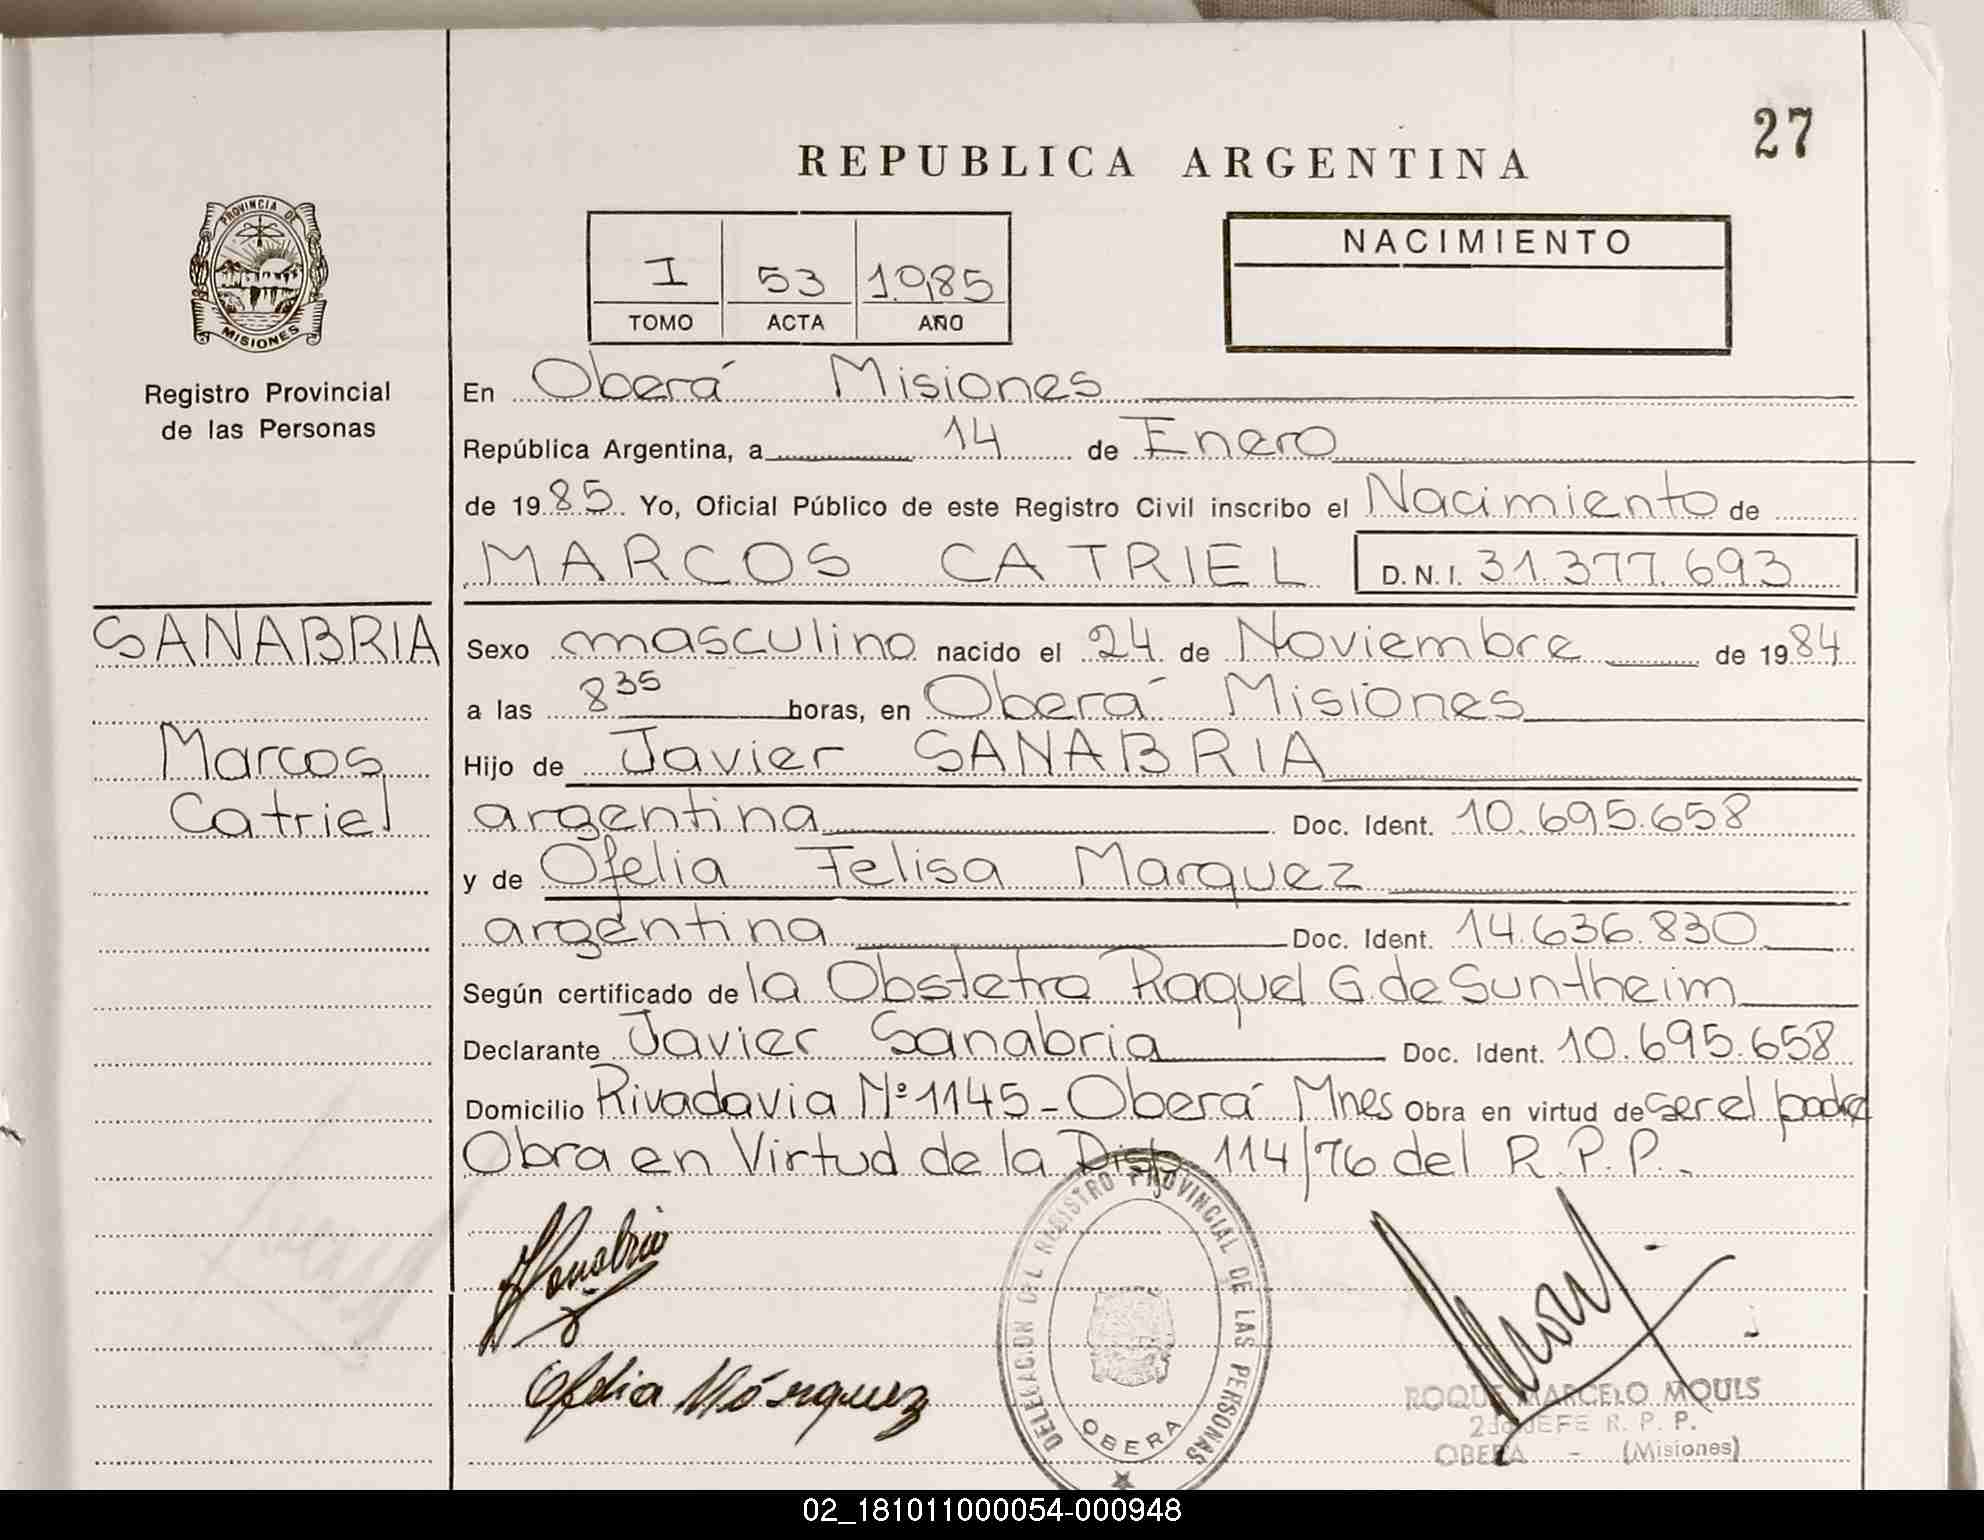 27
REPUBLICA ARGENTINA
PROVINCIA DE
MISIONES
Registro Provincial
de las Personas
I 53 1.985
TOMO ACTA AÑO
NACIMIENTO
En Oberá Misiones
República Argentina, a 14 de Enero
de 1985 Yo, Oficial Público de este Registro Civil inscribo el Nacimiento de
MARCOS CATRIEL D.N.I. 31.377.693
SANABRIA
Marcos
Catriel
Sexo masculino nacido el 24 de Noviembre de 1984
a las 8 35 horas, en Oberá Misiones
Hijo de Javier SANABRIA
argentina Doc. Ident. 10.695.658
y de Ofelia Felisa Marquez
argentina Doc. Ident. 14.636.830
Según certificado de la Obstetra Raquel G. de Suntheim
Declarante Javier Sanabria Doc. Ident. 10.695.658
Domicilio Rivadavia Nº 1145 - Oberá Mnes Obra en virtud de ser el padre
Obra en Virtud de la Disp 114/76 del R.P.P.
Sanabria
Ofelia Márquez
DELEGACION DEL REGISTRO PROVINCIAL DE LAS PERSONAS
OBERA
ROQUE MARCELO MOULS
2do JEFE R. P. P.
OBERA - (Misiones)
02_181011000054-000948